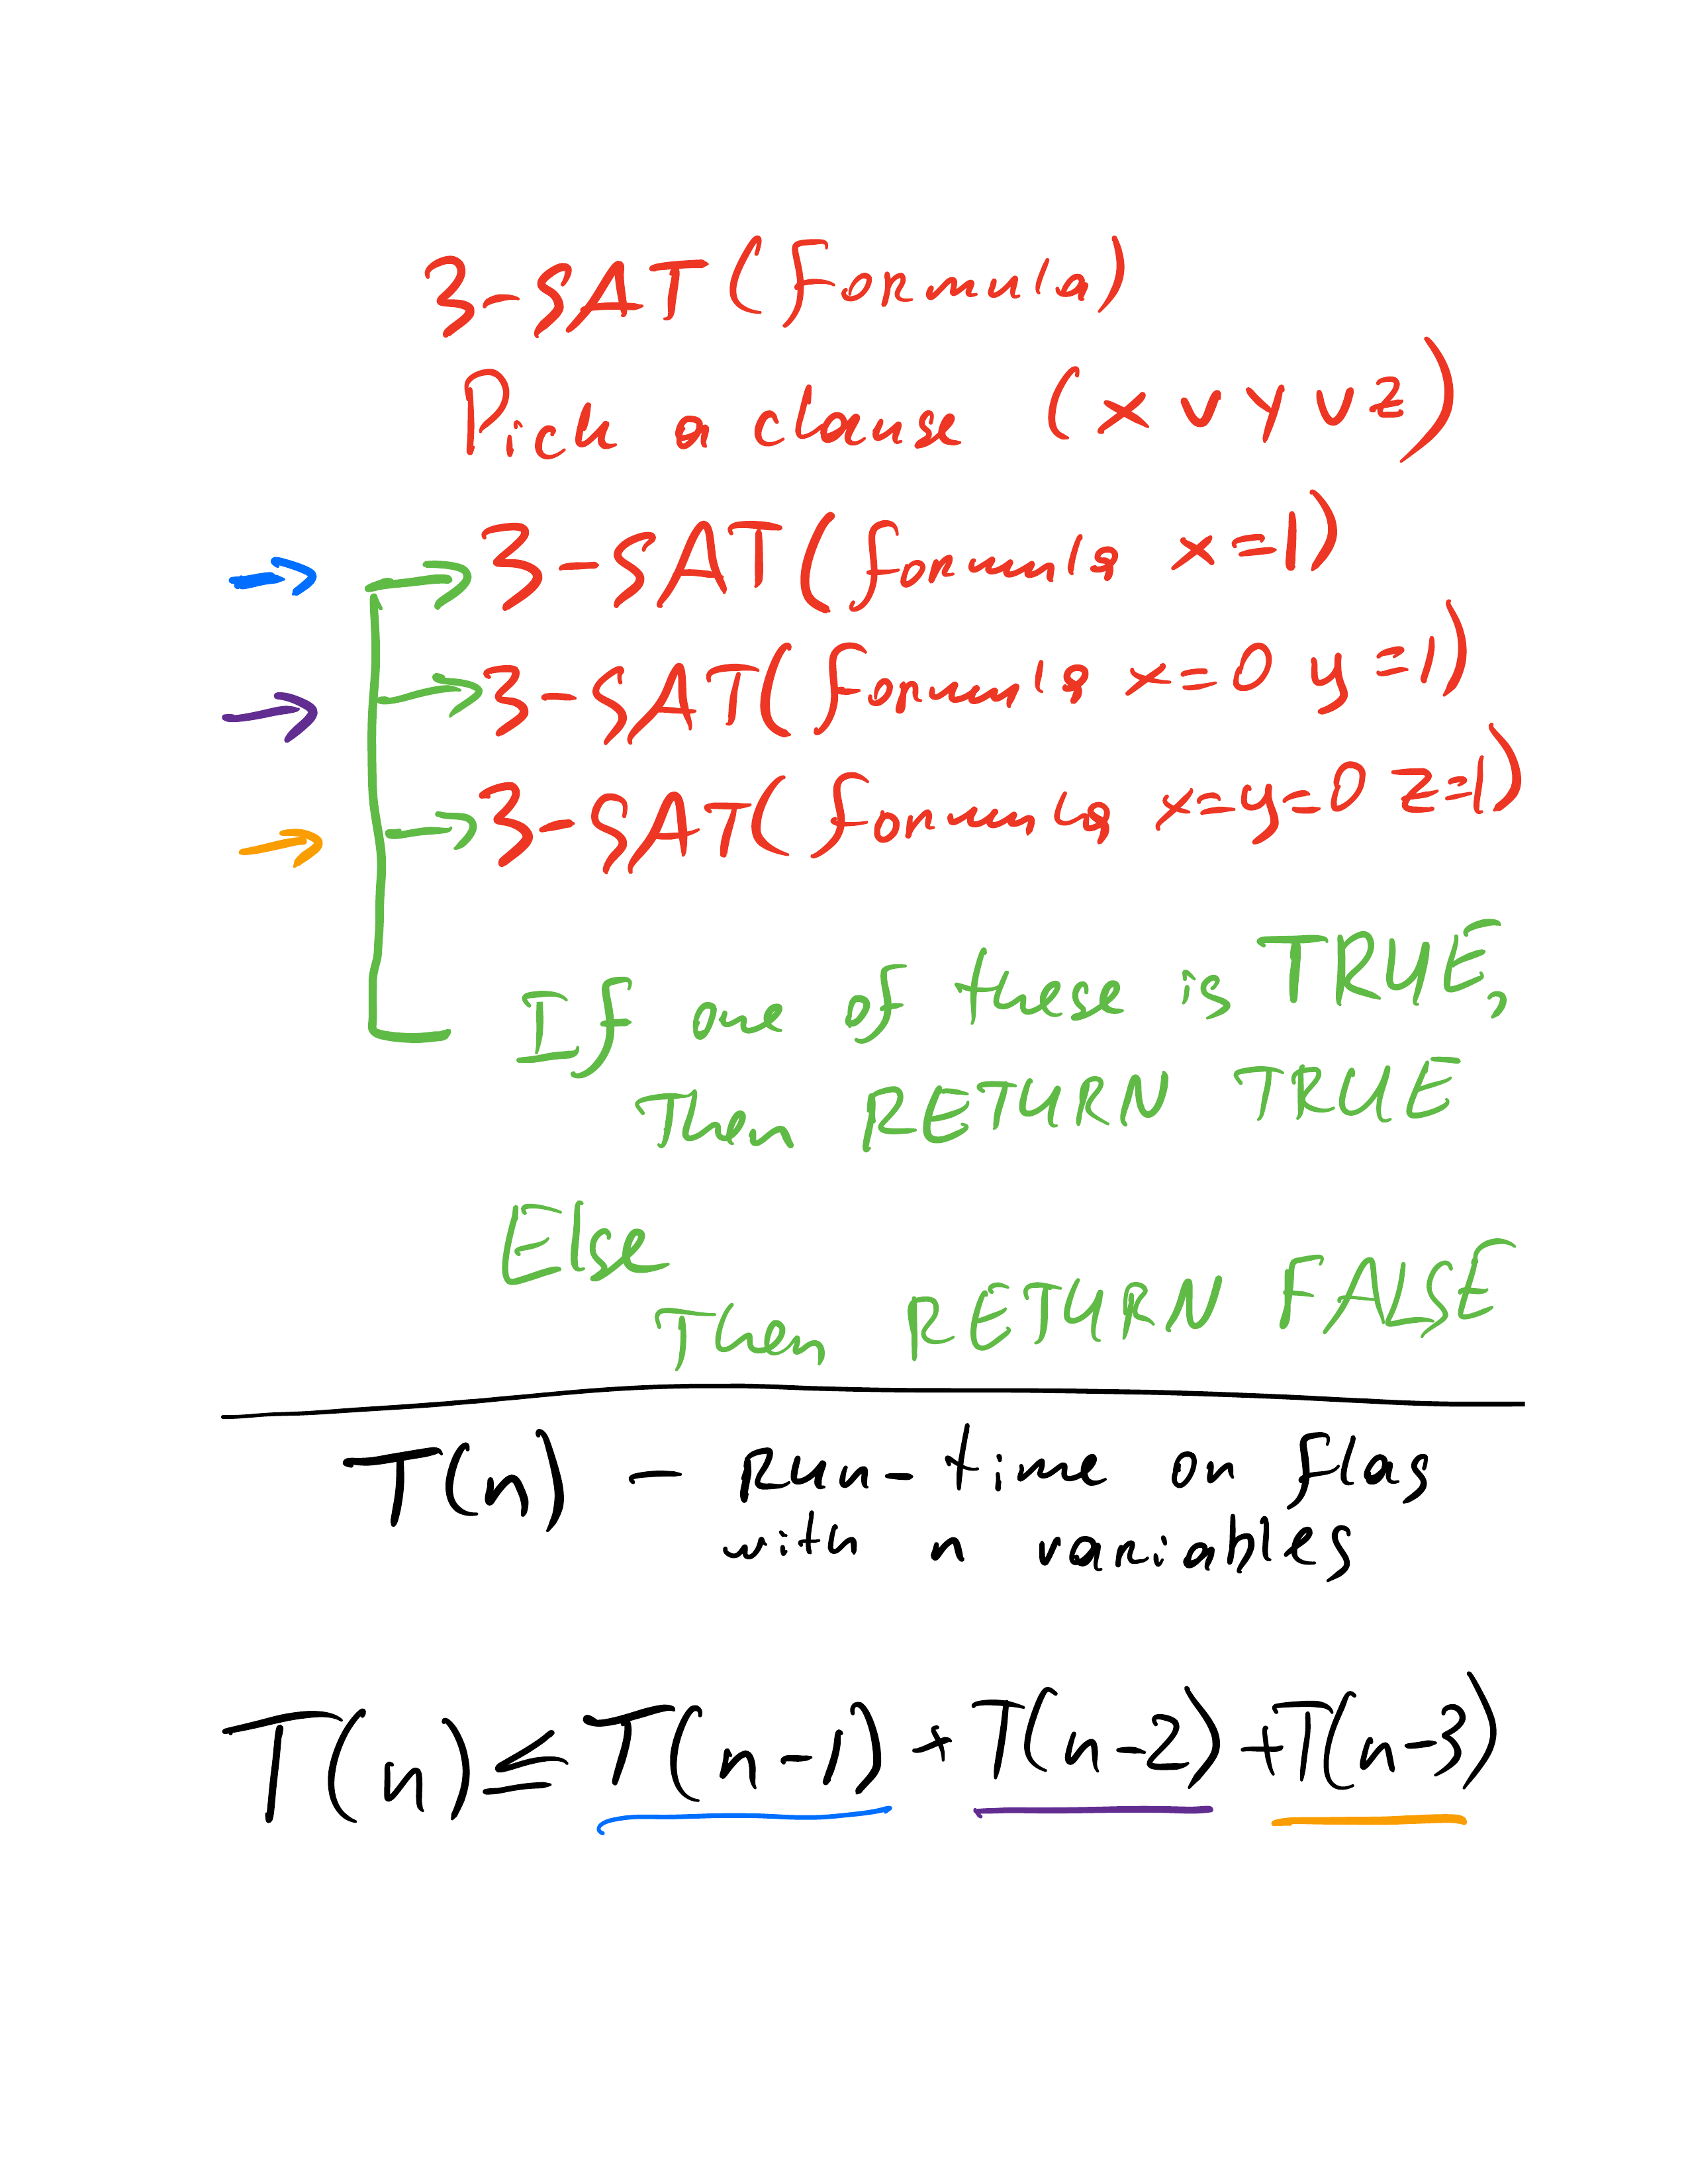 3-SAT(Formula)
Pick a clause (x ∨ y ∨ z)
3-SAT(formula x=1)
3-SAT(formula x=0 y=1)
3-SAT(formula x=y=0 z=1)
If one of these is TRUE,
Then RETURN TRUE
Else
Then RETURN FALSE
T(n) – Run-time on flas
with n variables
T(n) ≤ T(n-1) + T(n-2) + T(n-3)